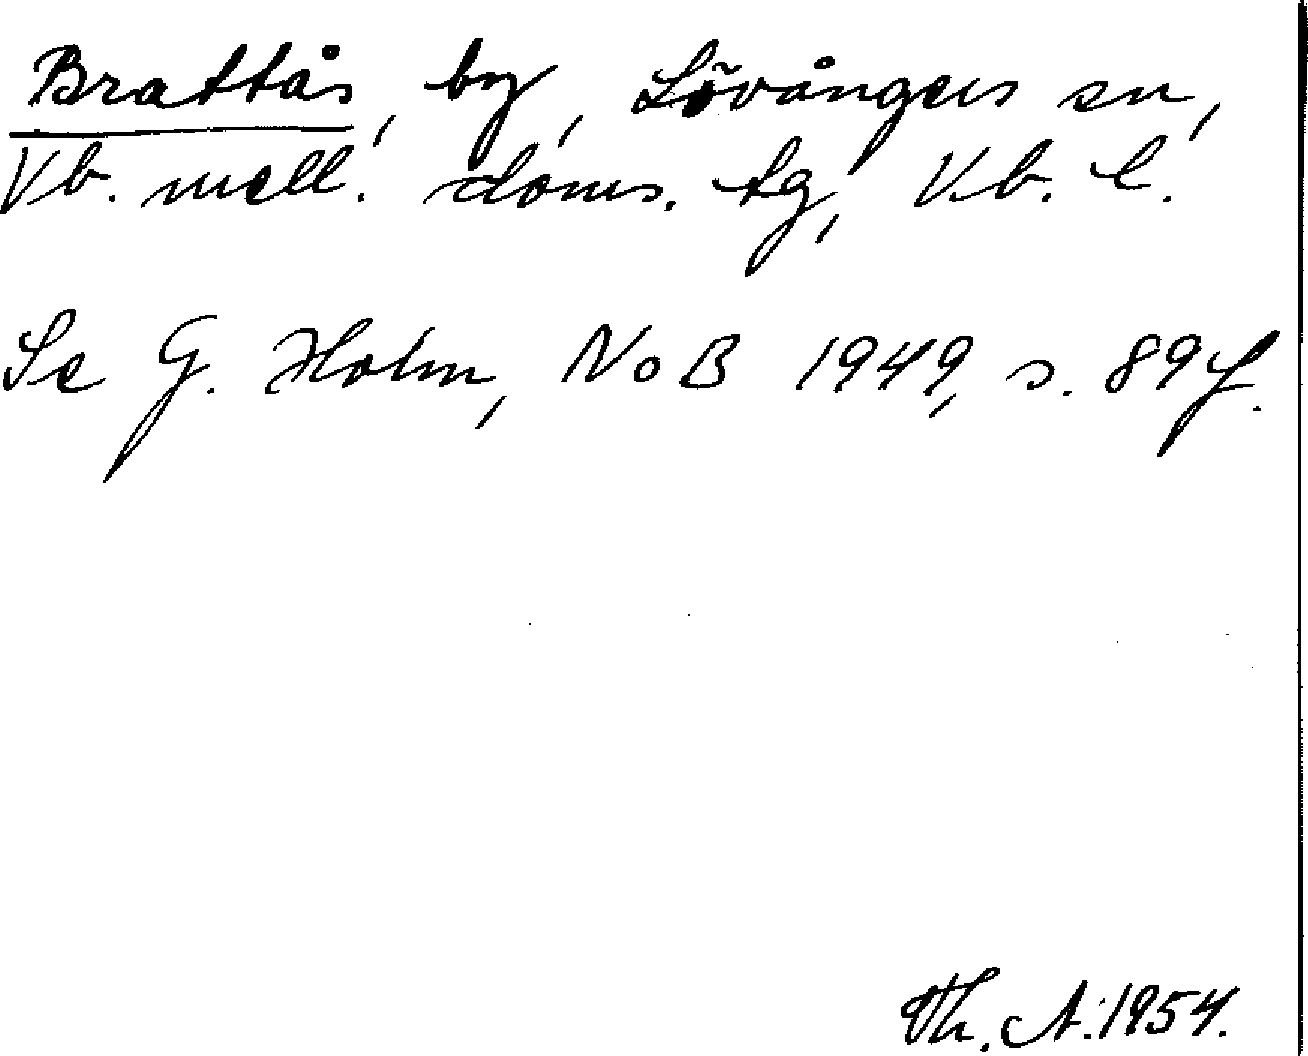 Brattås, by, Lövångers sn,
Vb. mell. doms. tg, Vb. l.
Se G. Holm, NoB 1949, s. 89f.
Th. A. 1954.